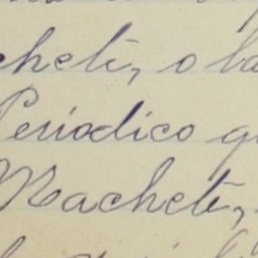 chete, o la
Periodico q
Machete,